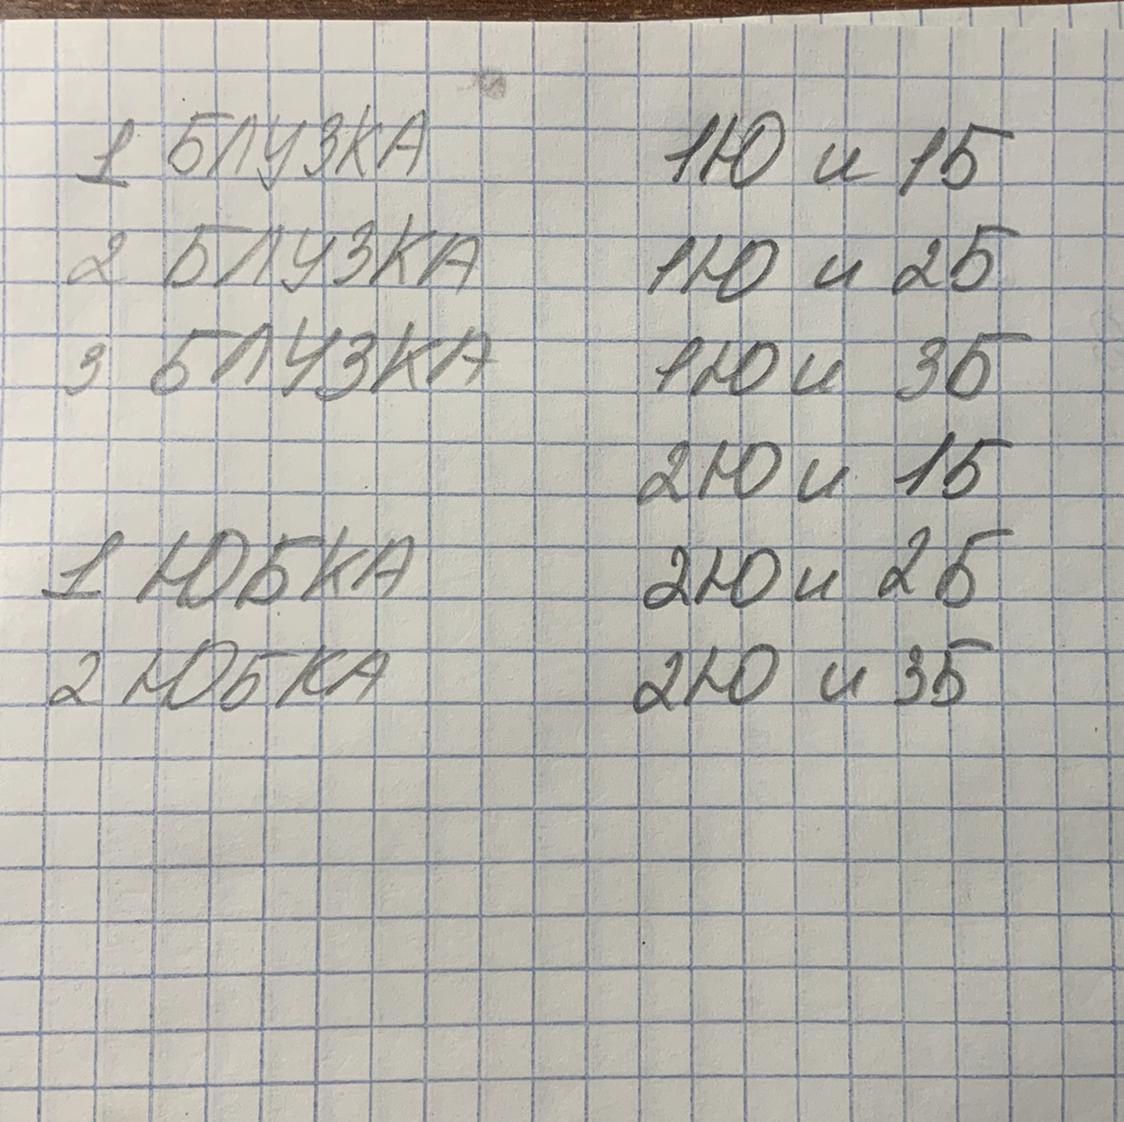 1 БЛУЗКА
2 БЛУЗКА
3 БЛУЗКА
1 ЮБКА
2 ЮБКА
1Ю и 1Б
1Ю и 2Б
1Ю и 3Б
2Ю и 1Б
2Ю и 2Б
2Ю и 3Б